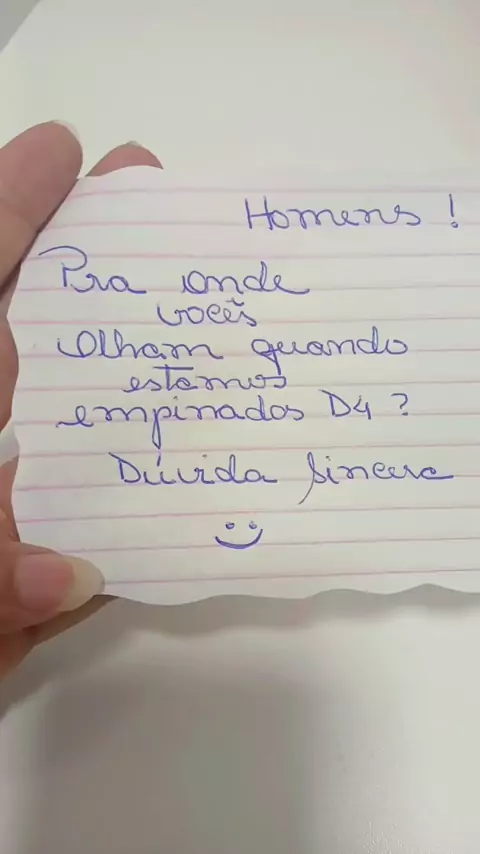 Homens !
Pra onde
vocês
olham quando
estamos
empinados D4 ?
Dúvida sincera